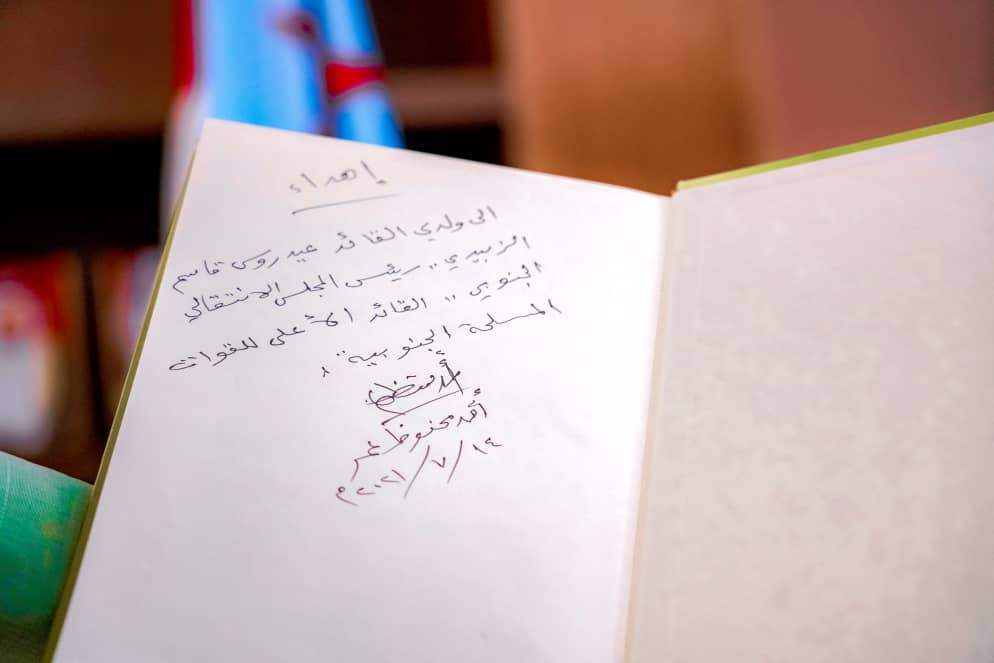 إهداء
الى ولدي القائد عيدروس قاسم
الزبيدي .. رئيس المجلس الانتقالي
الجنوبي .. القائد الأعلى للقوات
المسلحة الجنوبية ..
أحمد محفوظ عمر
١٤/٧/٢٠٢١م